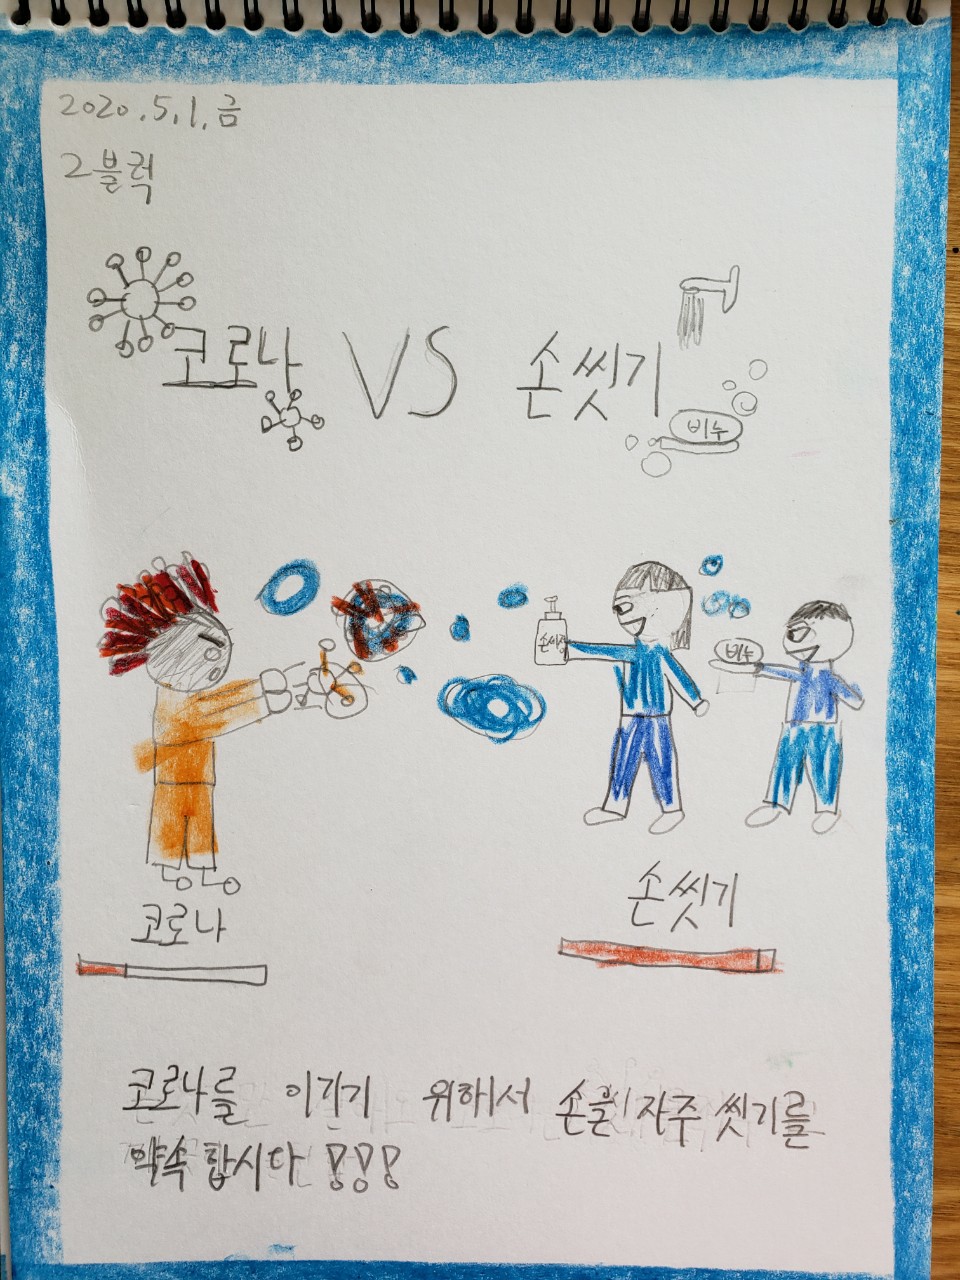 2020.5.1.금
2블럭
코로나 VS 손씻기
비누
손세정
비누
코로나
손씻기
코로나를 이기기 위해서 손을 자주 씻기를
약속 합시다!!!